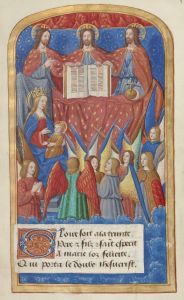 Gloire soit a la trinite
Pere & filz & sait esperit
A marie los felicite
Qui porta le doulx ihesucrist